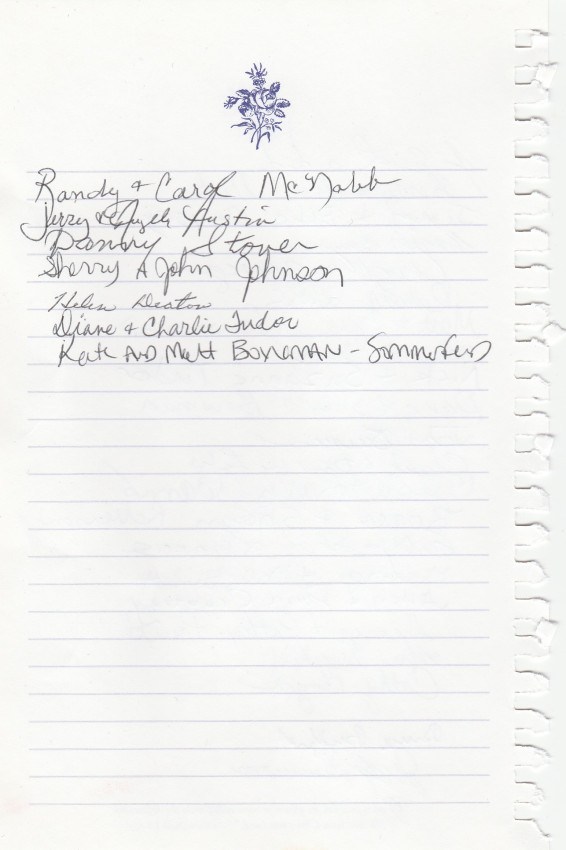 Randy + Carol McNabb
Jerry & Austin
Danny Stover
Sherry & John Johnson
Helen Deaton
Diane + Charlie Tudor
Kate AND Matt